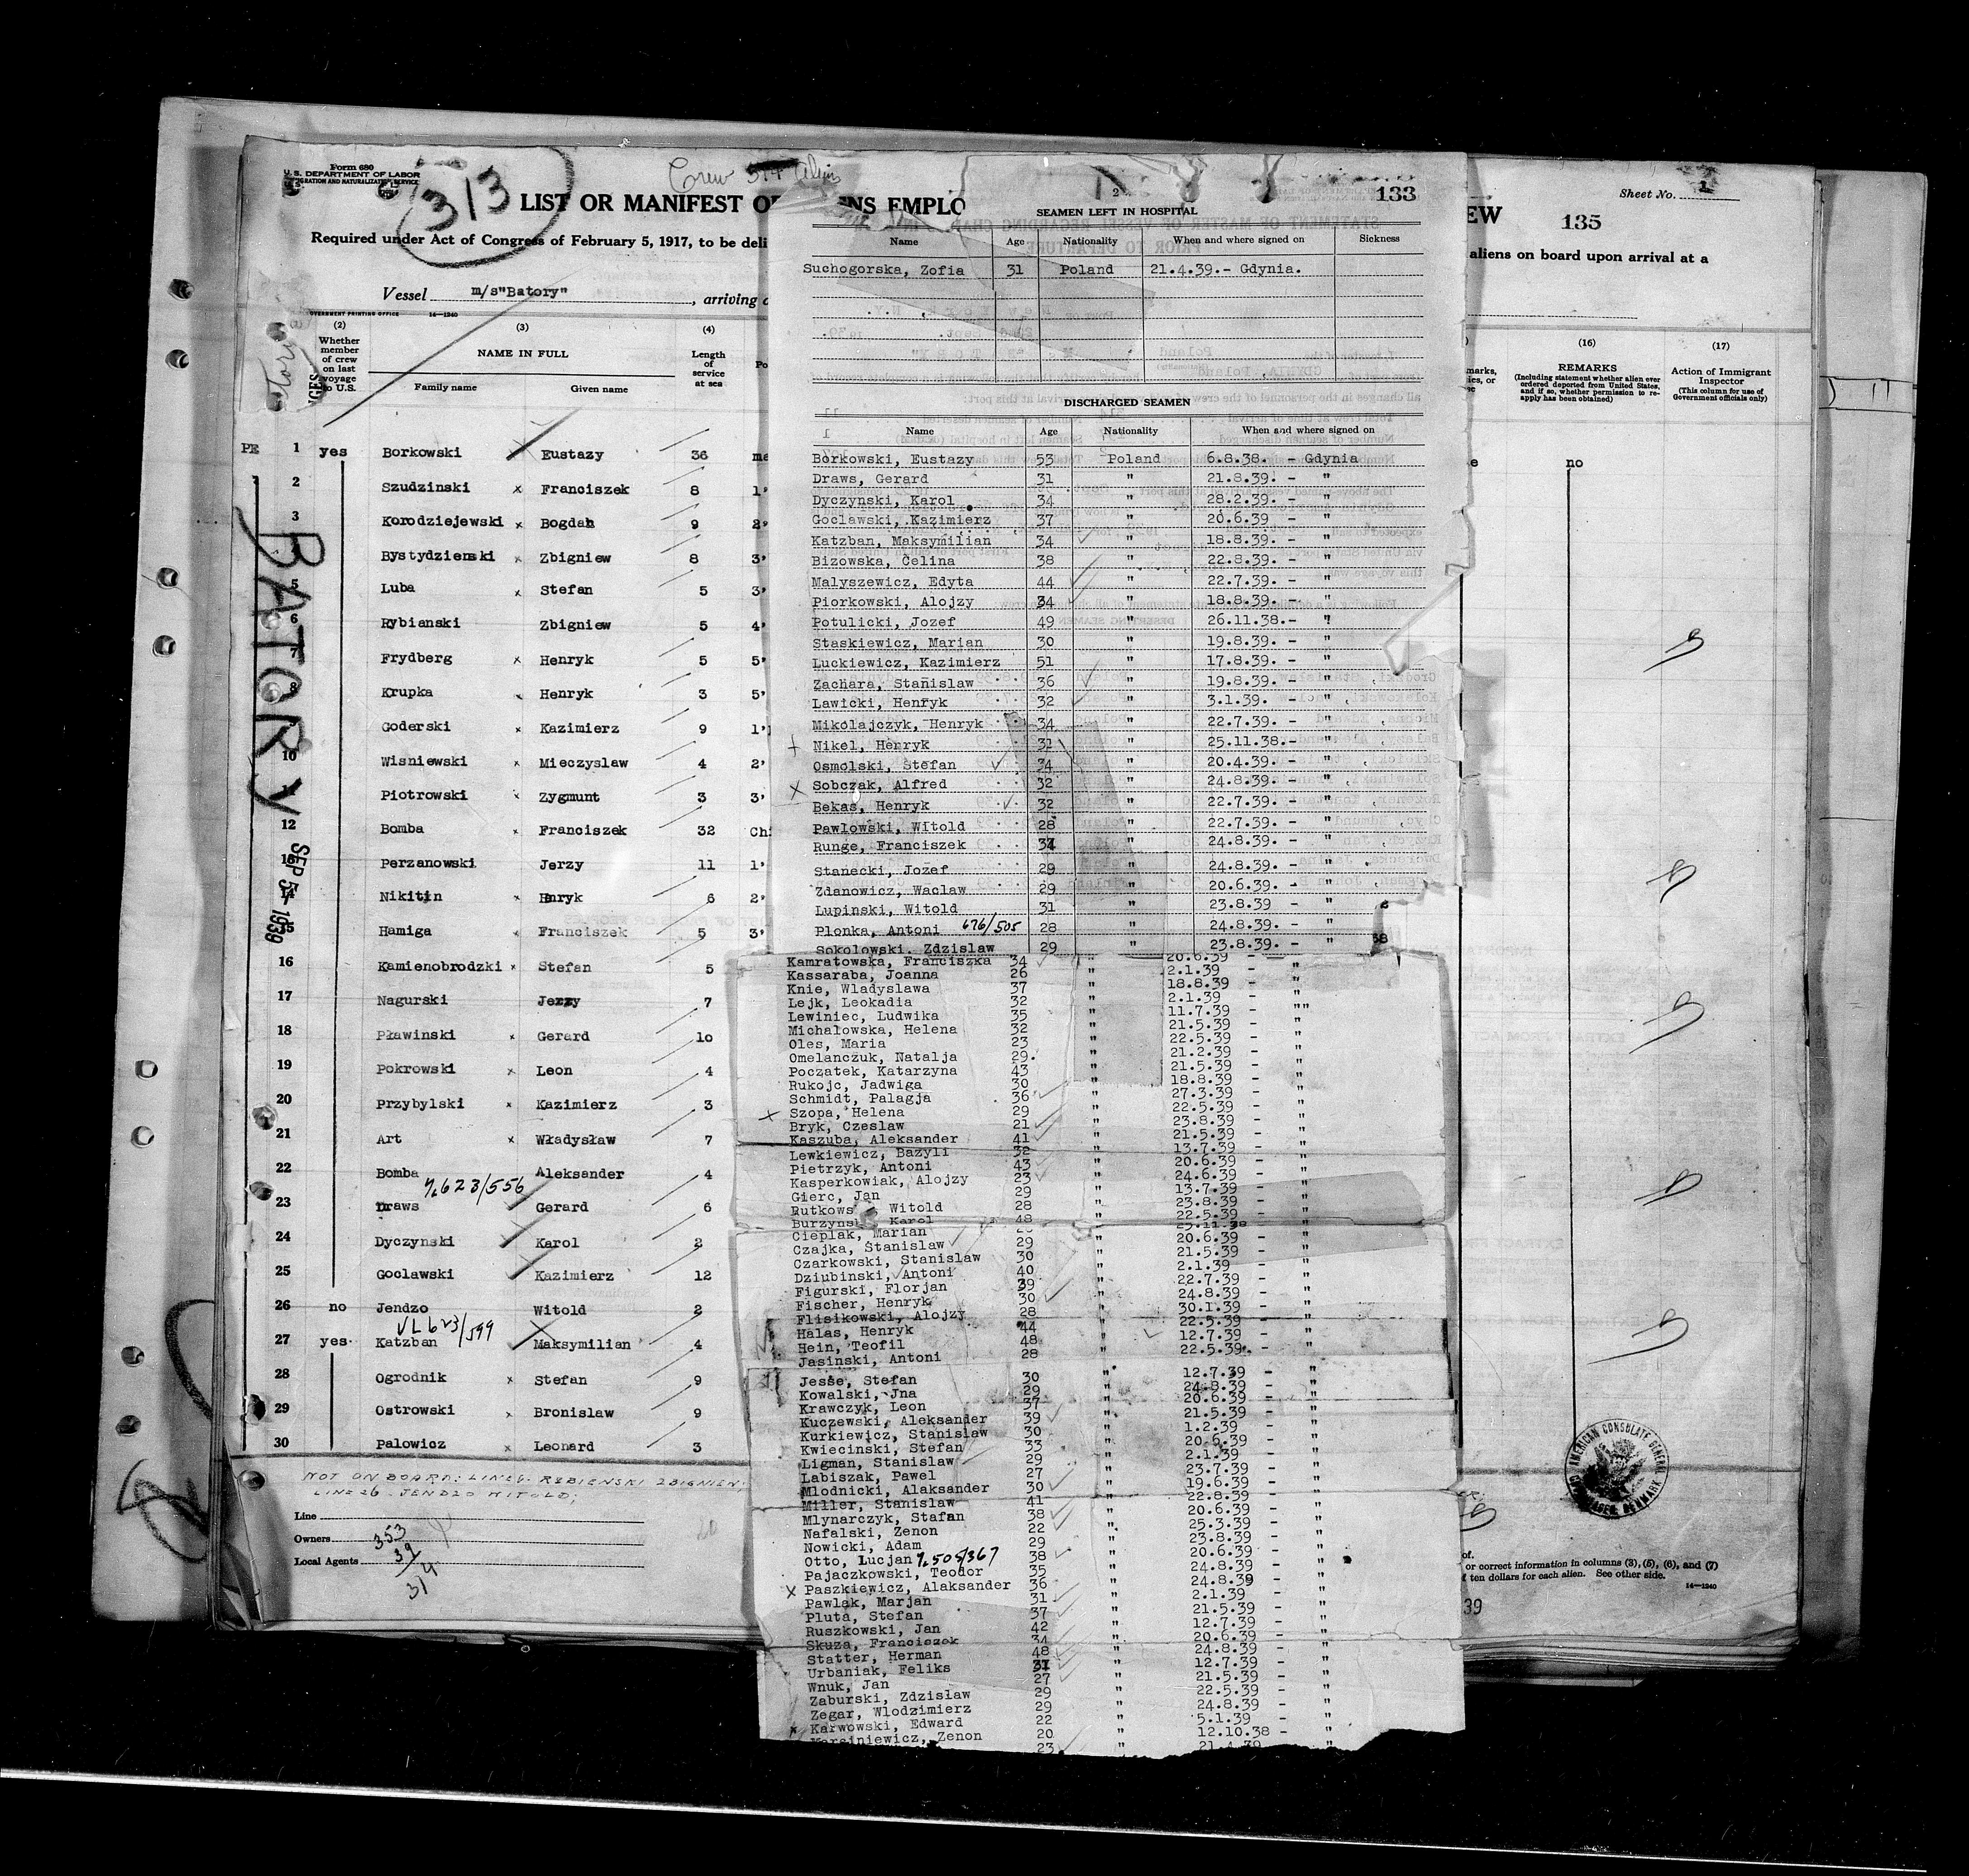 Form 680
U. S. DEPARTMENT OF LABOR
IMMIGRATION AND NATURALIZATION SERVICE
313
Crew
LIST OR MANIFEST OF
ENS EMPLO
Required under Act of Congress of February 5, 1917, to be deli
Vessel m/s"Batory" , arriving
GOVERNMENT PRINTING OFFICE 14—1240
(2) (3) (4)
Whether member of crew on last voyage to U.S.
NAME IN FULL
Family name Given name
Length of service at sea
PE 1 yes Borkowski Eustazy 36
2 Szudzinski x Franciszek 8 1'
3 Korodziejewski x Bogdan 9 2'
Bystydzienski x Zbigniew 8 3'
5 Luba x Stefan 5 3'
6 Rybianski Zbigniew 5 4'
7 Frydberg x Henryk 5 5'
8 Krupka x Henryk 3 5'
Goderski x Kazimierz 9 1'
10 Wisniewski x Mieczyslaw 4 2'
Piotrowski x Zygmunt 3 3'
12 Bomba x Franciszek 32 Ch
13 Perzanowski Jerzy 11 1'
14 Nikitin x Henryk 6 2'
15 Hamiga x Franciszek 5 3'
16 Kamienobrodzki x Stefan 5
17 Nagurski Jerzy 7
18 Pławinski x Gerard 10
19 Pokrowski x Leon 4
20 Przybylski x Kazimierz 3
21 Art x Władysław 7
22 Bomba Aleksander 4
7.623/556
23 Draws Gerard 6
24 Dyczynski Karol 2
25 Goclawski Kazimierz 12
26 no Jendzo Witold 2
VL623/599
27 yes Katzban Maksymilian 4
28 Ogrodnik x Stefan 9
29 Ostrowski x Bronislaw 9
30 Palowicz x Leonard 3
BATORY
SEP 5 - 1939
NOT ON BOARD: LINE 6. RYBIENSKI ZBIGNIEW;
LINE 26. JENDZO WITOLD;
Line
Owners
Local Agents
353
39
314
2
133
SEAMEN LEFT IN HOSPITAL
Name Age Nationality When and where signed on Sickness
Suchogorska, Zofia 31 Poland 21.4.39.- Gdynia.
DISCHARGED SEAMEN
Name Age Nationality When and where signed on
Borkowski, Eustazy 53 Poland 6.8.38. - Gdynia
Draws, Gerard 31 " 21.8.39. - "
Dyczynski, Karol 34 " 28.2.39. - "
Goclawski, Kazimierz 37 " 20.6.39 - "
Katzban, Maksymilian 34 " 18.8.39. - "
Bizowska, Celina 38 " 22.8.39. - "
Malyszewicz, Edyta 44 " 22.7.39. - "
Piorkowski, Alojzy 34 " 18.8.39. - "
Potulicki, Jozef 49 " 26.11.38.- "
Staskiewicz, Marian 30 " 19.8.39. - "
Luckiewicz, Kazimierz 51 " 17.8.39. - "
Zachara, Stanislaw 36 " 19.8.39. - "
Lawicki, Henryk 32 " 3.1.39. - "
Mikolajczyk, Henryk 34 " 22.7.39. - "
Nikel, Henryk 31 " 25.11.38.- "
Osmolski, Stefan 34 " 20.4.39. - "
x Sobczak, Alfred 32 " 24.8.39. - "
Bekas, Henryk 32 " 22.7.39. - "
Pawlowski, Witold 28 " 22.7.39. - "
Runge, Franciszek 34 " 24.8.39. - "
Stanecki, Jozef 29 " 24.8.39. - "
Zdanowicz, Waclaw 29 " 20.6.39. - "
Lupinski, Witold 31 " 23.8.39 - "
Plonka, Antoni 676/505 28 " 24.8.39. - "
Sokolowski, Zdzislaw 29 " 23.8.39. - "
38
Kamratowska, Franciszka 34 20.6.39 -
Kassaraba, Joanna 26 " 2.1.39 - "
Knie, Wladyslawa 37 " 18.8.39 - "
Lejk, Leokadia 32 " 2.1.39 - "
Lewiniec, Ludwika 35 " 11.7.39 - "
Michalowska, Helena 32 " 21.5.39 - "
Oles, Maria 23 " 22.5.39 - "
Omelanczuk, Natalja 29. " 21.2.39 - "
Początek, Katarzyna 43 " 21.5.39 - "
Rukojc, Jadwiga 30 " 18.8.39 - "
Schmidt, Palagja 36 " 27.3.39 - "
x Szopa, Helena 29 " 22.5.39 - "
Bryk, Czeslaw 21 " 23.8.39 - "
Kaszuba, Aleksander 41 " 21.5.39 - "
Lewkiewicz, Bazyli 32 " 13.7.39 - "
Pietrzyk, Antoni 43 " 20.6.39 - "
Kasperkowiak, Alojzy 23 " 24.6.39 - "
Gierc, Jan 29 " 13.7.39 - "
Rutkows Witold 28 " 23.8.39 - "
Burzyns Karol 48 " 22.5.39 - "
25.11.38
Cieplak, Marian " 20.6.39 - "
Czajka, Stanislaw 29 " 21.5.39 - "
Czarkowski, Stanislaw 30 " 2.1.39 - "
Dziubinski, Antoni 40 " 22.7.39 - "
Figurski, Florjan 39 " 24.8.39 - "
Fischer, Henryk 30 " 30.1.39 - "
Flisikowski, Alojzy 28 " 22.5.39 - "
Halas, Henryk 44 " 12.7.39 - "
Hein, Teofil 48 " 22.5.39. - "
Jasinski, Antoni 28
Jesse, Stefan 30 " 12.7.39 - "
Kowalski, Jna 29 " 24.8.39 - "
Krawczyk, Leon 37 " 20.6.39 - "
Kuczewski, Aleksander 39 " 21.5.39 - "
Kurkiewicz, Stanislaw 30 " 1.2.39 - "
Kwiecinski, Stefan 33 " 20.6.39 - "
Ligman, Stanislaw 29 " 2.1.39 - "
Labiszak, Pawel 27 " 23.7.39 - "
Mlodnicki, Alaksander 30 " 19.6.39 - "
Miller, Stanislaw 41 " 22.8.39 - "
Mlynarczyk, Stafan 38 " 20.6.39 - "
Nafalski, Zenon 22 " 25.3.39 - "
Nowicki, Adam 29 " 23.8.39 - "
Otto, Lucjan 7.505/367 38 " 20.6.39 - "
Pajaczkowski, Teodor 35 " 24.8.39 - "
x Paszkiewicz, Alaksander 36 " 24.8.39 - "
Pawlak, Marjan 31 " 2.1.39 - "
Pluta, Stefan 37 " 21.5.39 - "
Ruszkowski, Jan 42 " 12.7.39 - "
Skuza, Franciszek 34 " 20.6.39 - "
Statter, Herman 48 " 24.8.39 - "
Urbaniak, Feliks 31 " 12.7.39 - "
Wnuk, Jan 27 " 21.5.39 - "
Zaburski, Zdzislaw 29 " 22.5.39 - "
Zegar, Wlodzimierz 29 " 24.8.39 - "
x Karwowski, Edward 22 " 5.1.39 - "
Marciniewicz, Zenon 20 " 12.10.38 - "
23 21.4.39 - "
EW
Sheet No. 1
135
aliens on board upon arrival at a
(16) (17)
REMARKS
(Including statement whether alien ever ordered deported from United States, and if so, whether permission to reapply has been obtained)
Action of Immigrant Inspector
(This column for use of Government officials only)
no
AMERICAN CONSULATE GENERAL
COPENHAGEN, DENMARK
of.
or correct information in columns (3), (5), (6), and (7)
ten dollars for each alien. See other side.
14—1240
39